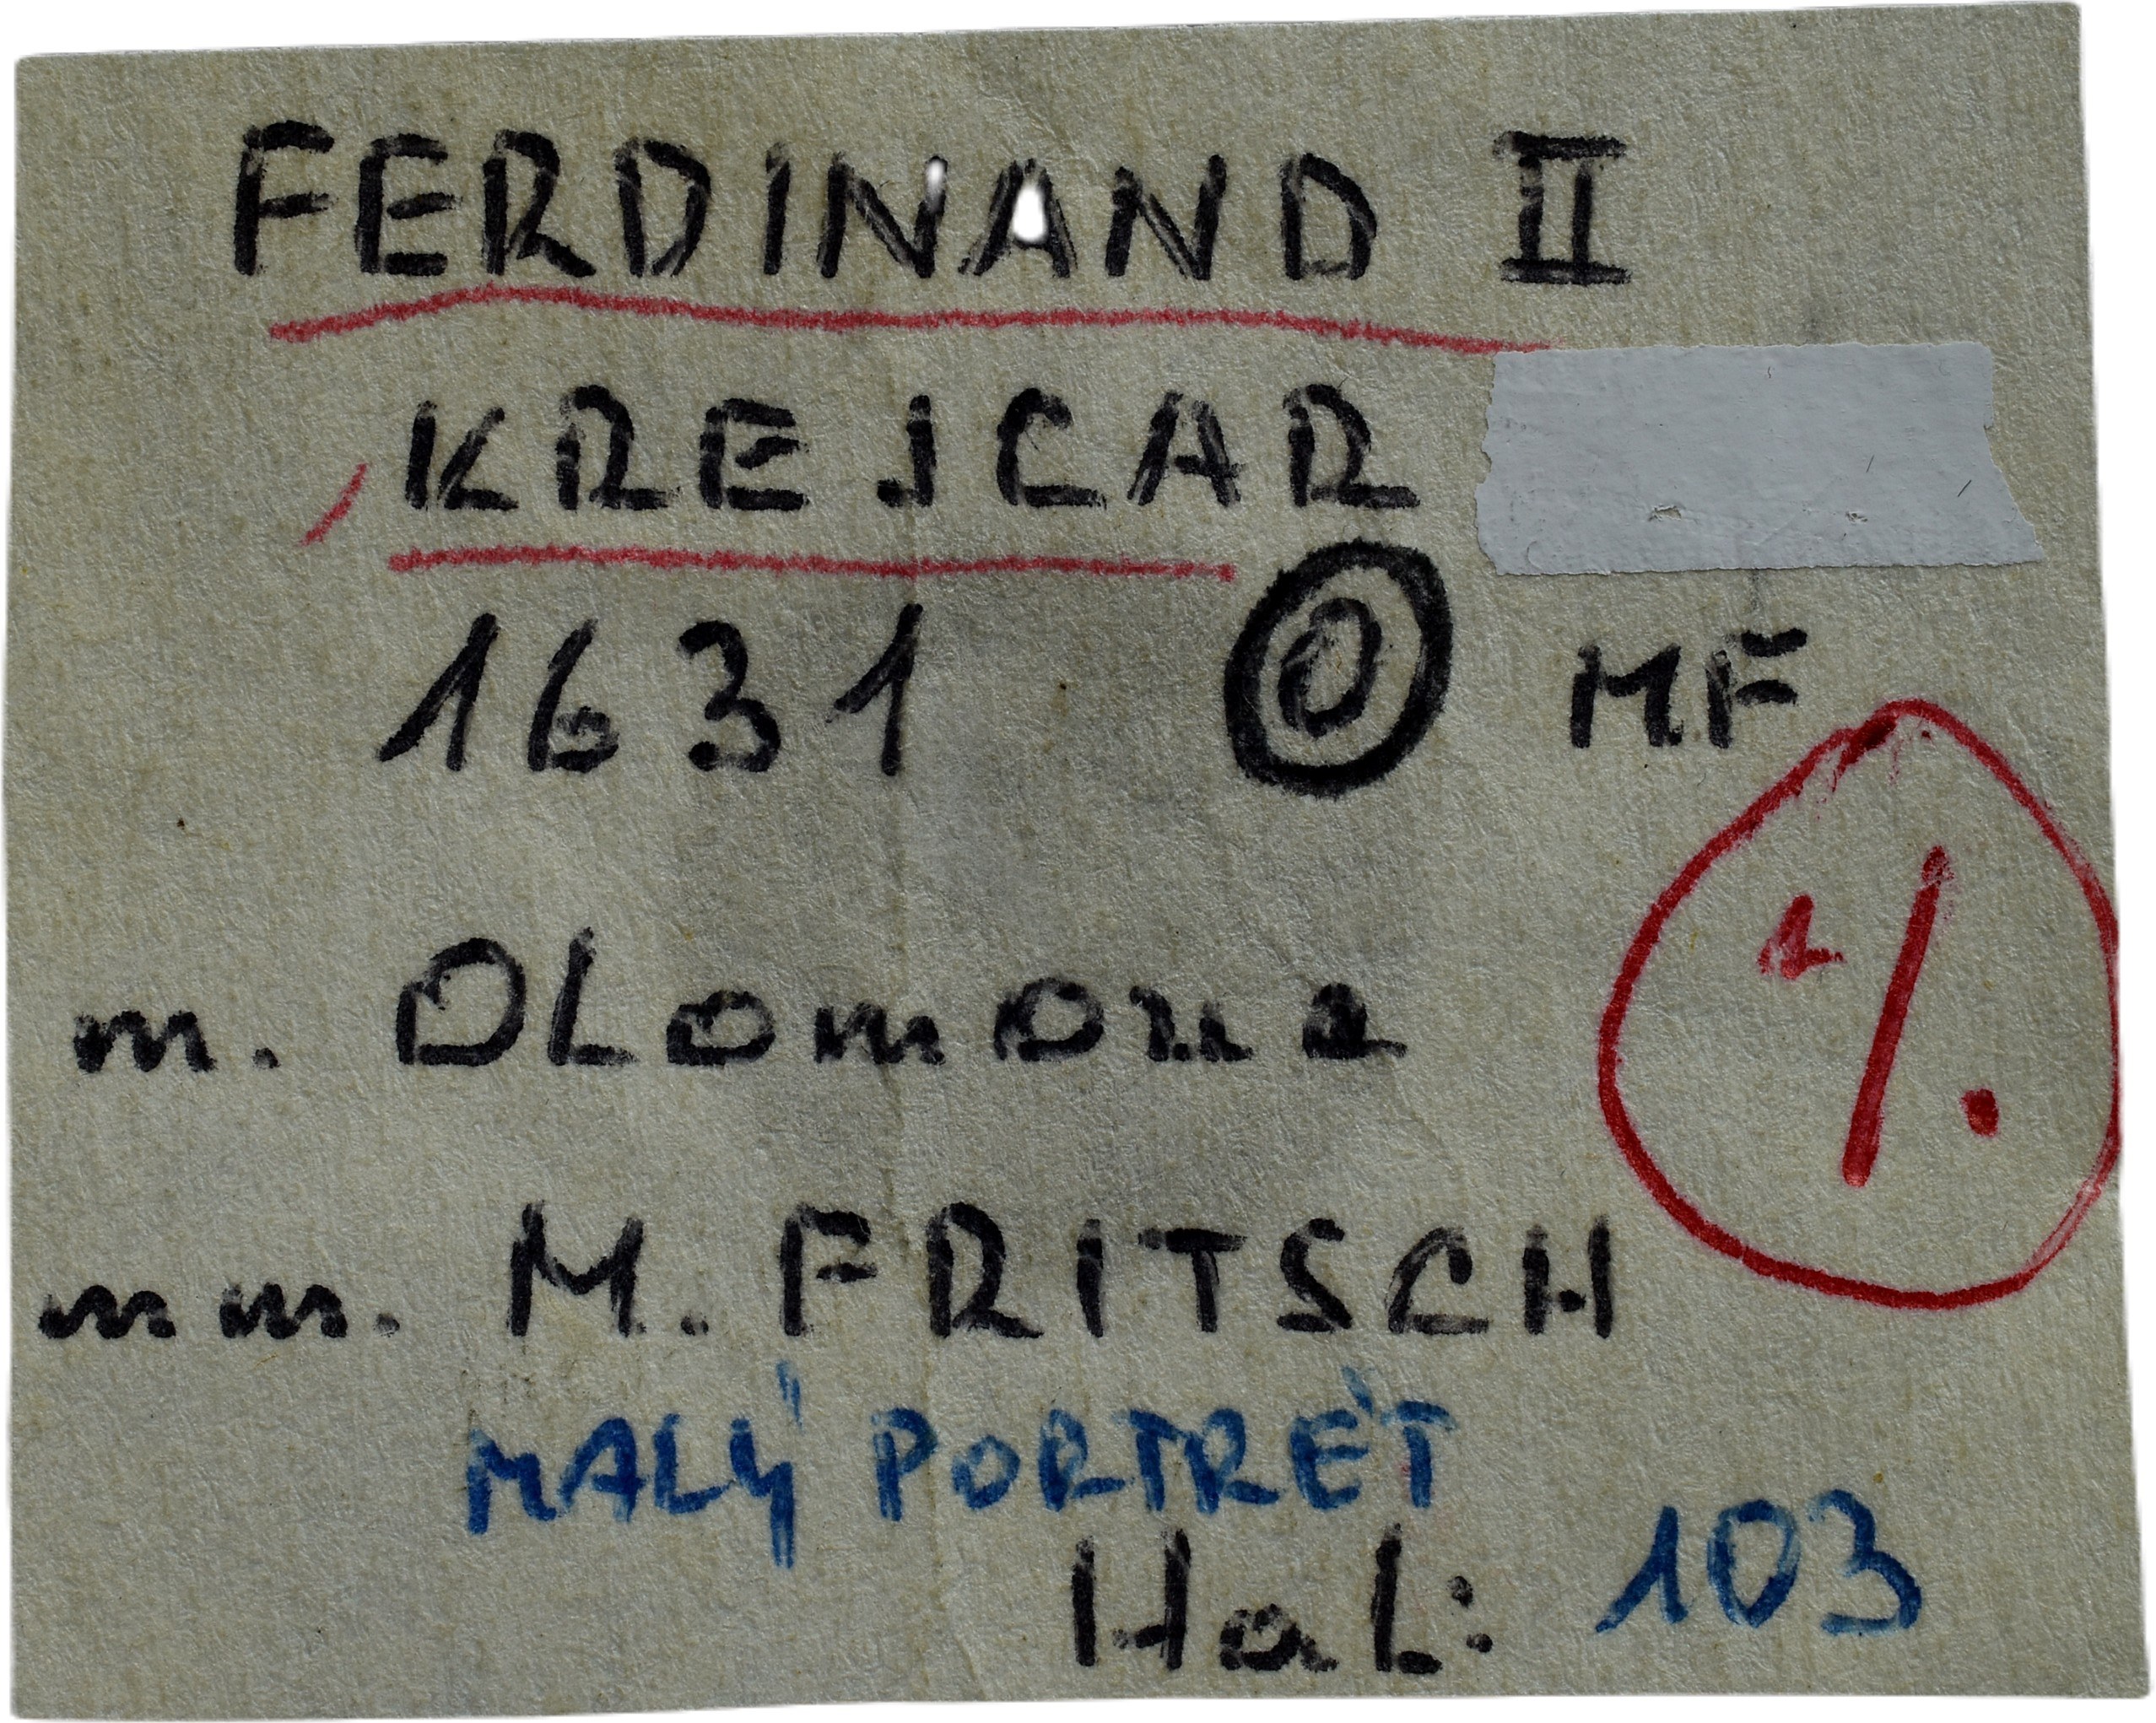 FERDINAND II
KREJCAR
1631 O MF
m. OLomouc
mm. M. FRITSCH
MALÝ PORTRÉT
Hal: 103